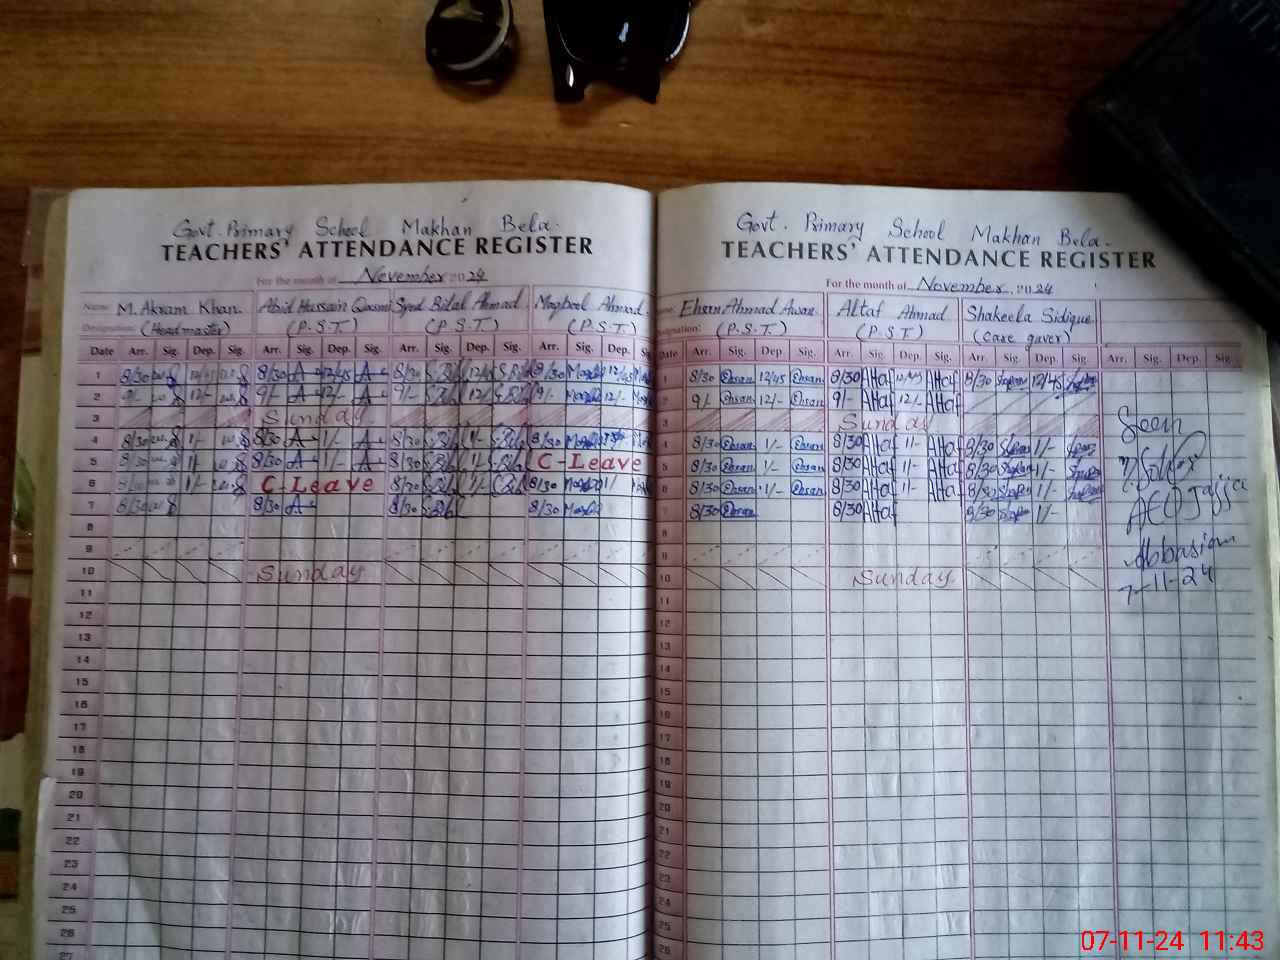 Govt. Primary School Makhan Bela.
TEACHERS' ATTENDANCE REGISTER
For the month of November 2024
Name: M. Akram Khan. Abid Hussain Qasmi Syed Bilal Ahmad Maqbool Ahmad.
Designation: (Head master) (P.S.T) (P.S.T) (P.S.T)
Date Arr. Sig. Dep. Sig. Arr. Sig. Dep. Sig. Arr. Sig. Dep. Sig. Arr. Sig. Dep.
1 8/30 12/45 8/30 A 12/45 A 8/30 12/45 8/30
2 9/- 12/- 9/- A 12/- A 9/- 12/- 9/- 12/-
3 Sunday
4 8/30 1/- 8/30 A 1/- A 8/30 1/- 8/30
5 8/30 1/- 8/30 A 1/- A 8/30 1/- C-Leave
6 8/30 1/- C-Leave 8/30 1/- 8/30 1/-
7 8/30 8/30 A 8/30 8/30
8
9
10 Sunday
11
12
13
14
15
16
17
18
19
20
21
22
23
24
25
26
27
Govt. Primary School Makhan Bela.
TEACHERS' ATTENDANCE REGISTER
For the month of November 2024
Ehsan Ahmad Awan. Altaf Ahmad Shakeela Sidique
(P.S.T) (P.S.T) (Care guver)
Date Arr. Sig. Dep. Sig. Arr. Sig. Dep. Sig. Arr. Sig. Dep. Sig. Arr. Sig. Dep. Sig.
1 8/30 Ehsan 12/45 Ehsan 8/30 Altaf Altaf 8/30 12/45
2 9/- Ehsan 12/- Ehsan 9/- Altaf 12/- Altaf
3 Sunday
4 8/30 Ehsan 1/- Ehsan 8/30 Altaf 1/- Altaf 8/30 1/-
5 8/30 Ehsan 1/- Ehsan 8/30 Altaf 1/- Altaf 8/30 1/-
6 8/30 Ehsan 1/- Ehsan 8/30 Altaf 1/- Altaf 8/30 1/-
7 8/30 Ehsan 8/30 Altaf 8/30 1/-
8
9
10 Sunday
11
12
13
14
15
16
17
18
19
20
21
22
23
24
25
26
Seen
AEO Jajja
Abbasian
7-11-24
07-11-24 11:43